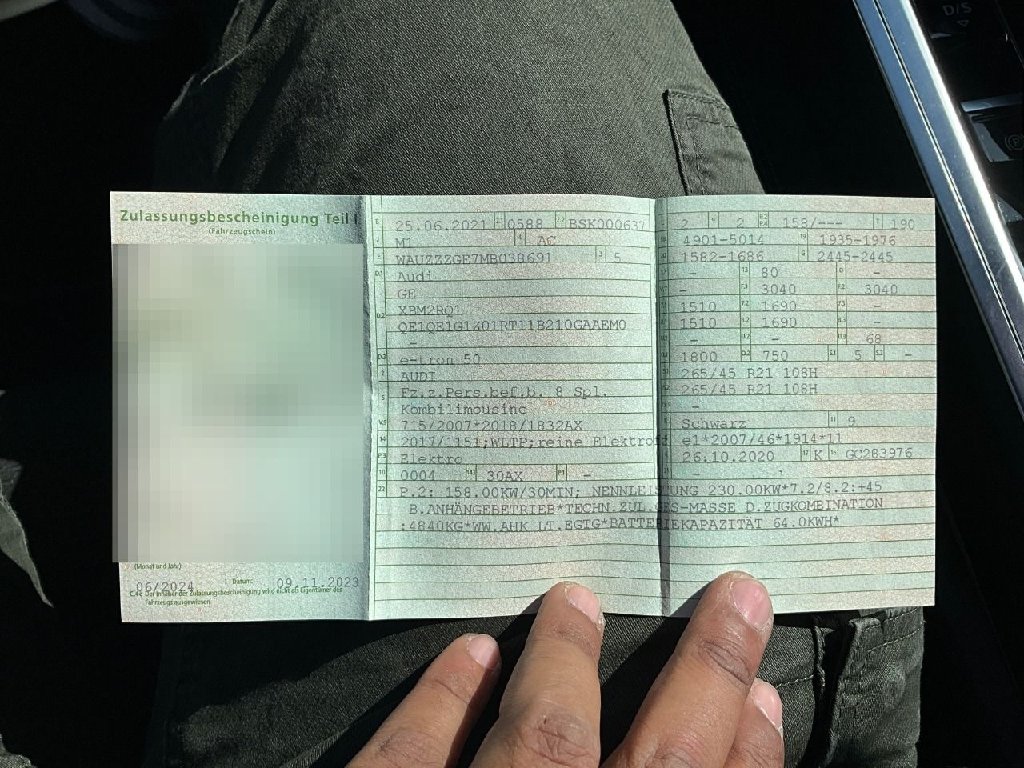 Zulassungsbescheinigung Teil I
(Fahrzeugschein)
(Monat und Jahr)
06/2024 Datum: 09.11.2023
C.4c Der Inhaber der Zulassungsbescheinigung wird nicht als Eigentümer des
Fahrzeugs ausgewiesen.
25.06.2021 0588 BSK000637
M1 AC
5
Audi
GE
-
e-tron 50
AUDI
Fz.z.Pers.bef.b. 8 Spl.
Kombilimousine
715/2007*2018/1832AX
2017/1151;WLTP;reine Elektrofz
Elektro
0004 30AX -
P.2: 158.00KW/30MIN; NENNLEISTUNG 230.00KW*7.2/8.2:+45
B.ANHÄNGEBETRIEB*TECHN.ZUL.GES-MASSE D.ZUGKOMBINATION
:4840KG*WW.AHK LT.EGTG*BATTERIEKAPAZITÄT 64.0KWH*
2 2 158/--- 190
4901-5014 1935-1976
1582-1686 2445-2445
- 80 -
- 3040 3040
1510 1690 -
1510 1690 -
- - 68
1800 750 5 -
265/45 R21 108H
265/45 R21 108H
-
Schwarz 9
e1*2007/46*1914*11
26.10.2020 K GC283976
-
D/S